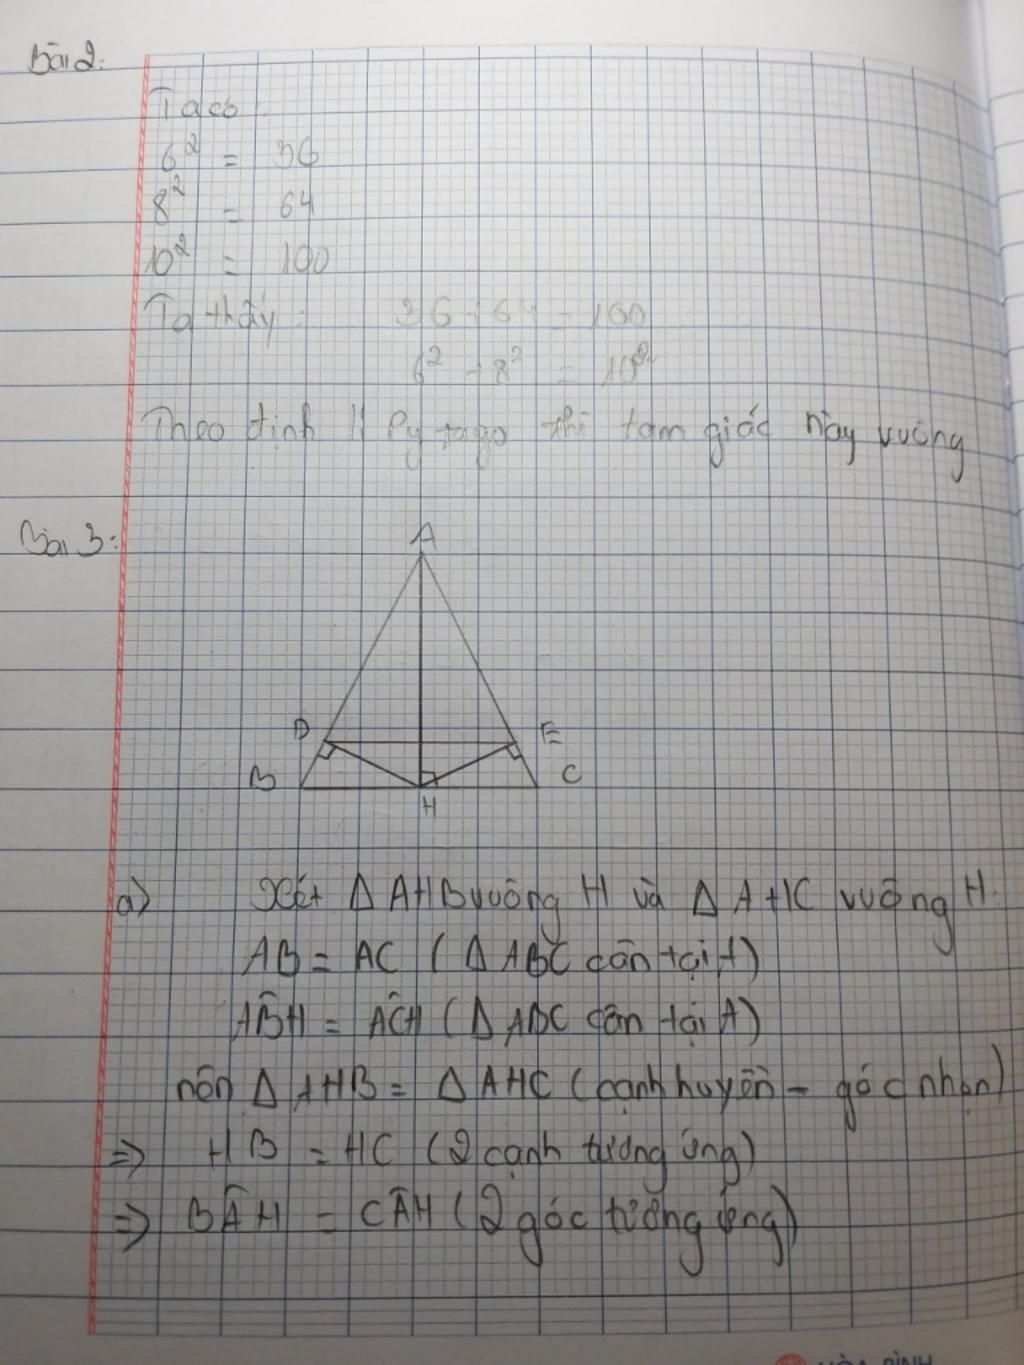 Bài 2:
Ta có:
6² = 36
8² = 64
10² = 100
Ta thấy: 36 + 64 = 100
6² + 8² = 10²
Theo định lí Pytago thì tam giác này vuông
Bài 3:
A
D E
B C
H
a) Xét Δ AHB vuông H và Δ AHC vuông H.
AB = AC (Δ ABC cân tại A)
AB̂H = AĈH (Δ ABC cân tại A)
nên Δ AHB = Δ AHC (cạnh huyền - góc nhọn)
=> HB = HC (2 cạnh tương ứng)
=> BÂH = CÂH (2 góc tương ứng)
HÒA BÌNH